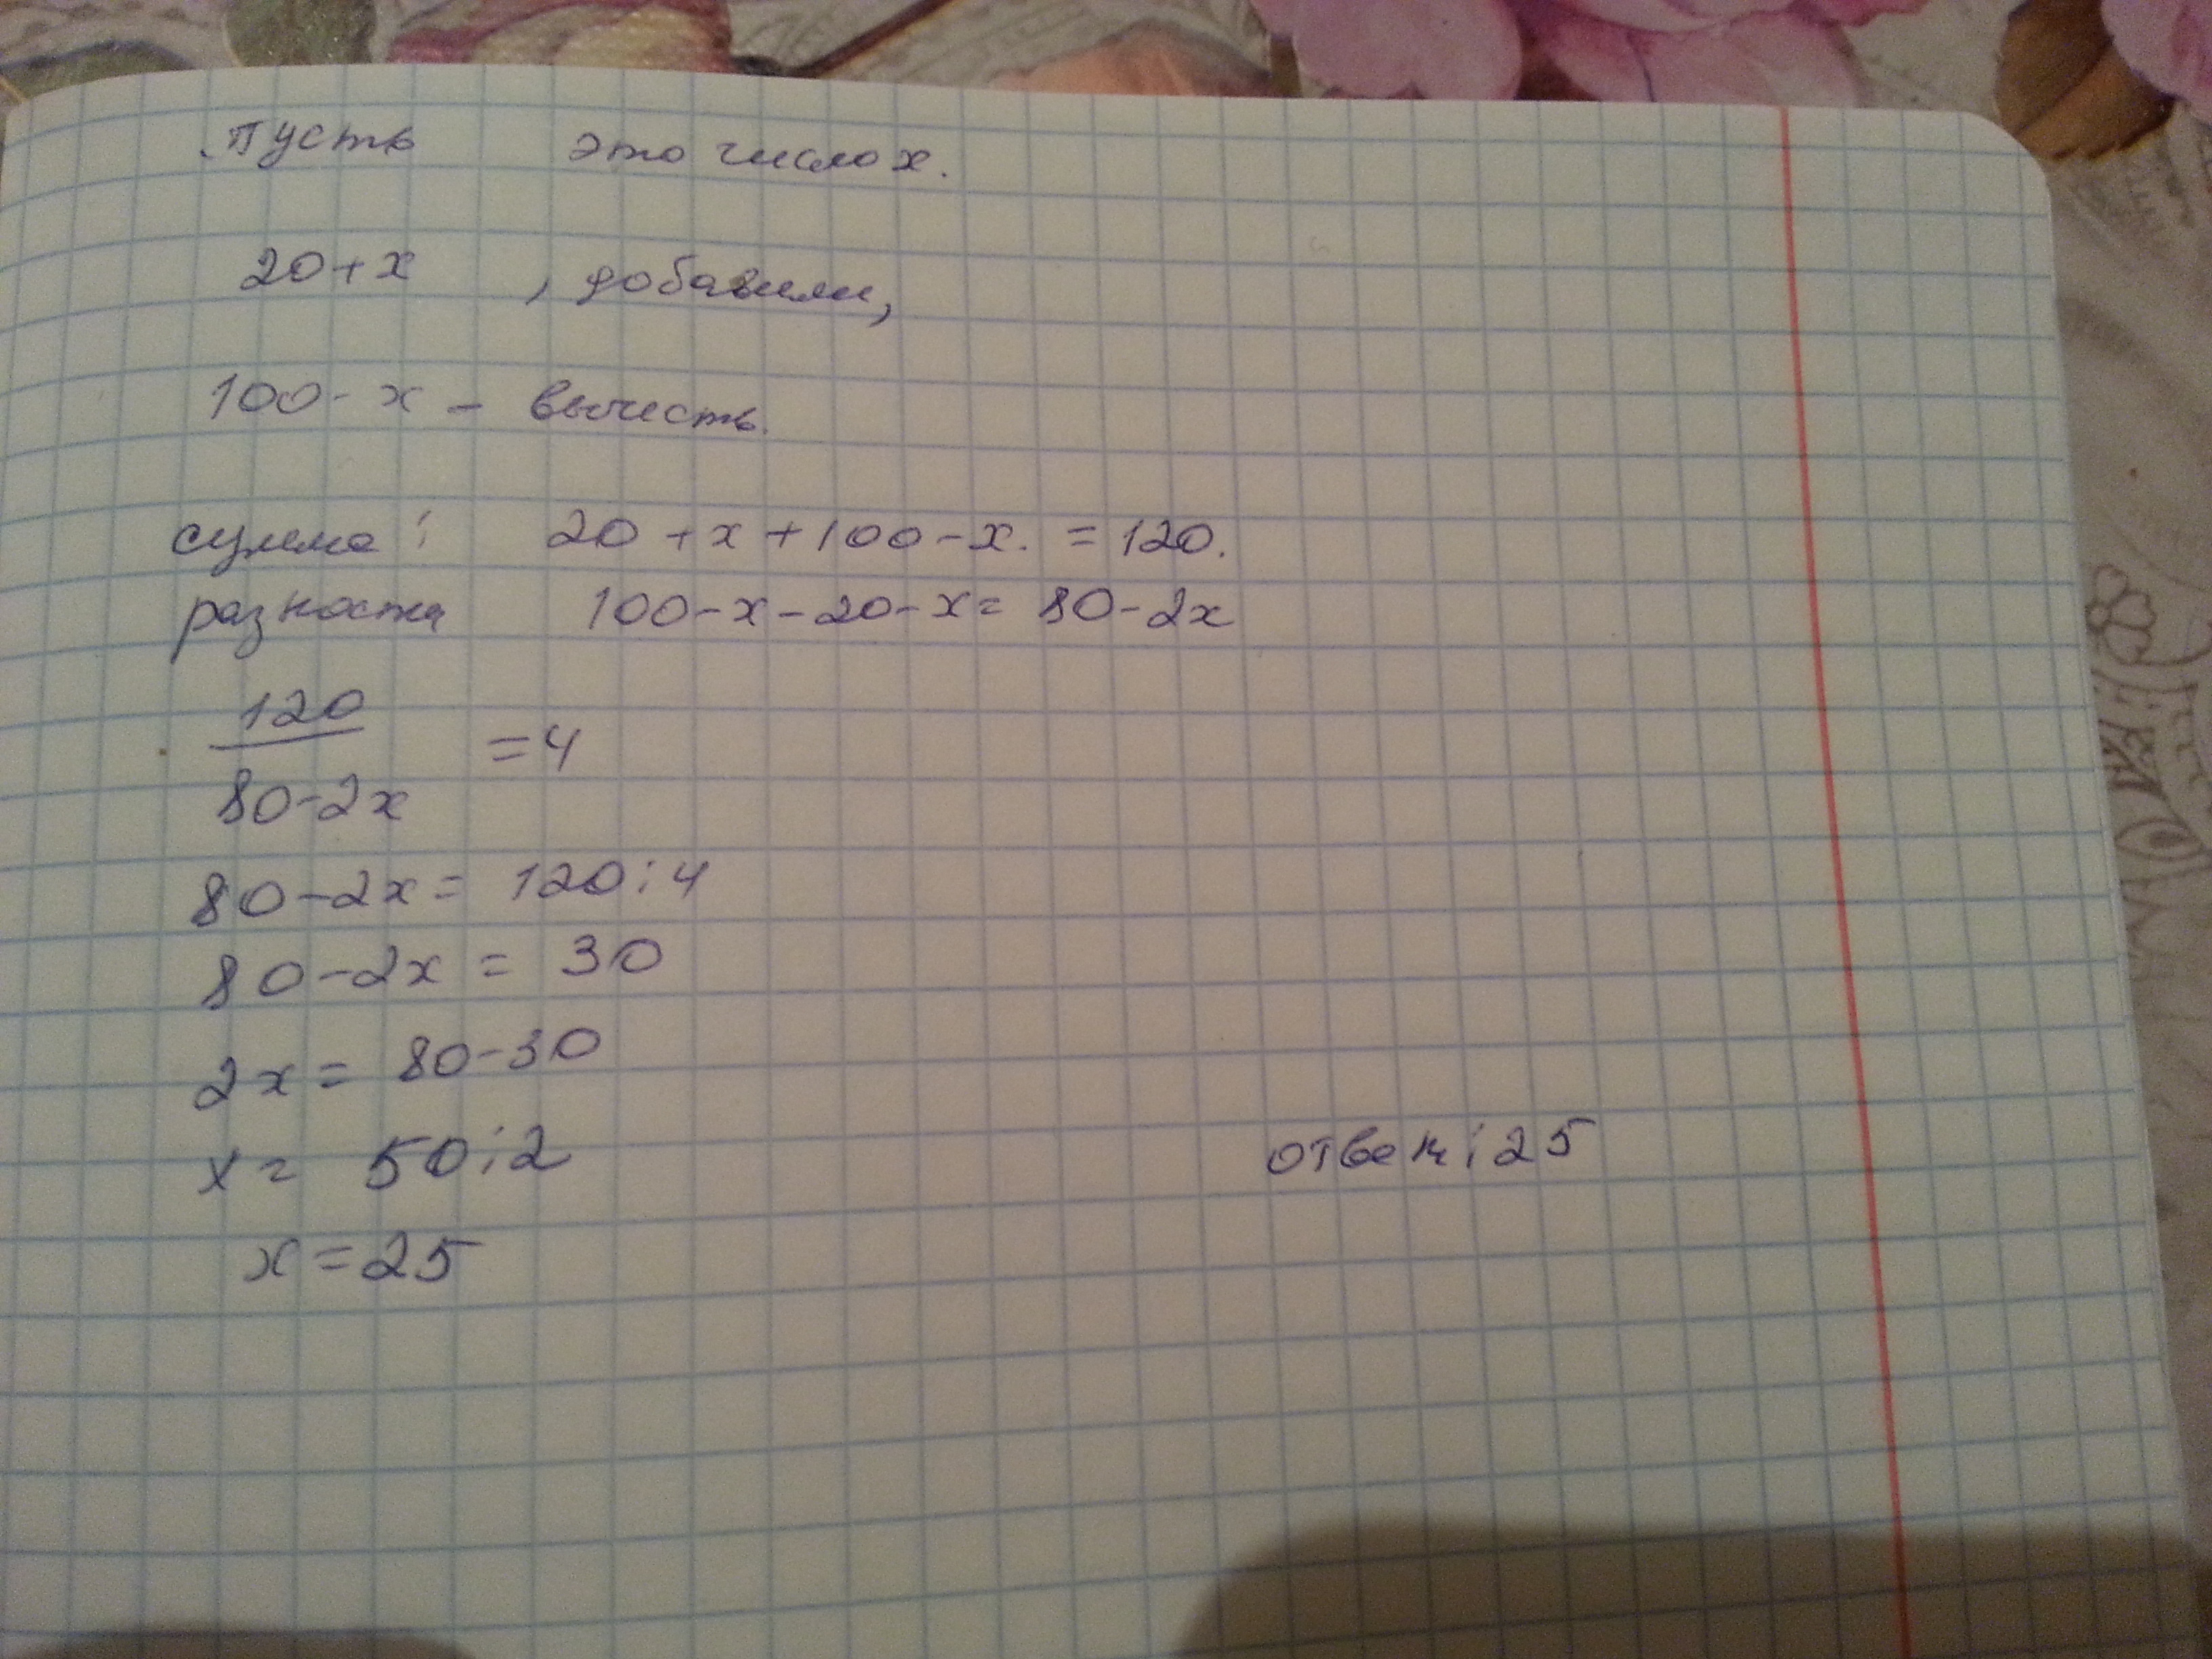 Пусть это число х.
20+х , добавили,
100-х - вычесть.
сумма: 20+х+100-х. =120.
разность 100-х-20-х= 80-2х
120
=4
80-2х
80-2х= 120:4
80-2х = 30
2х= 80-30
х= 50:2
ответ:25
х=25